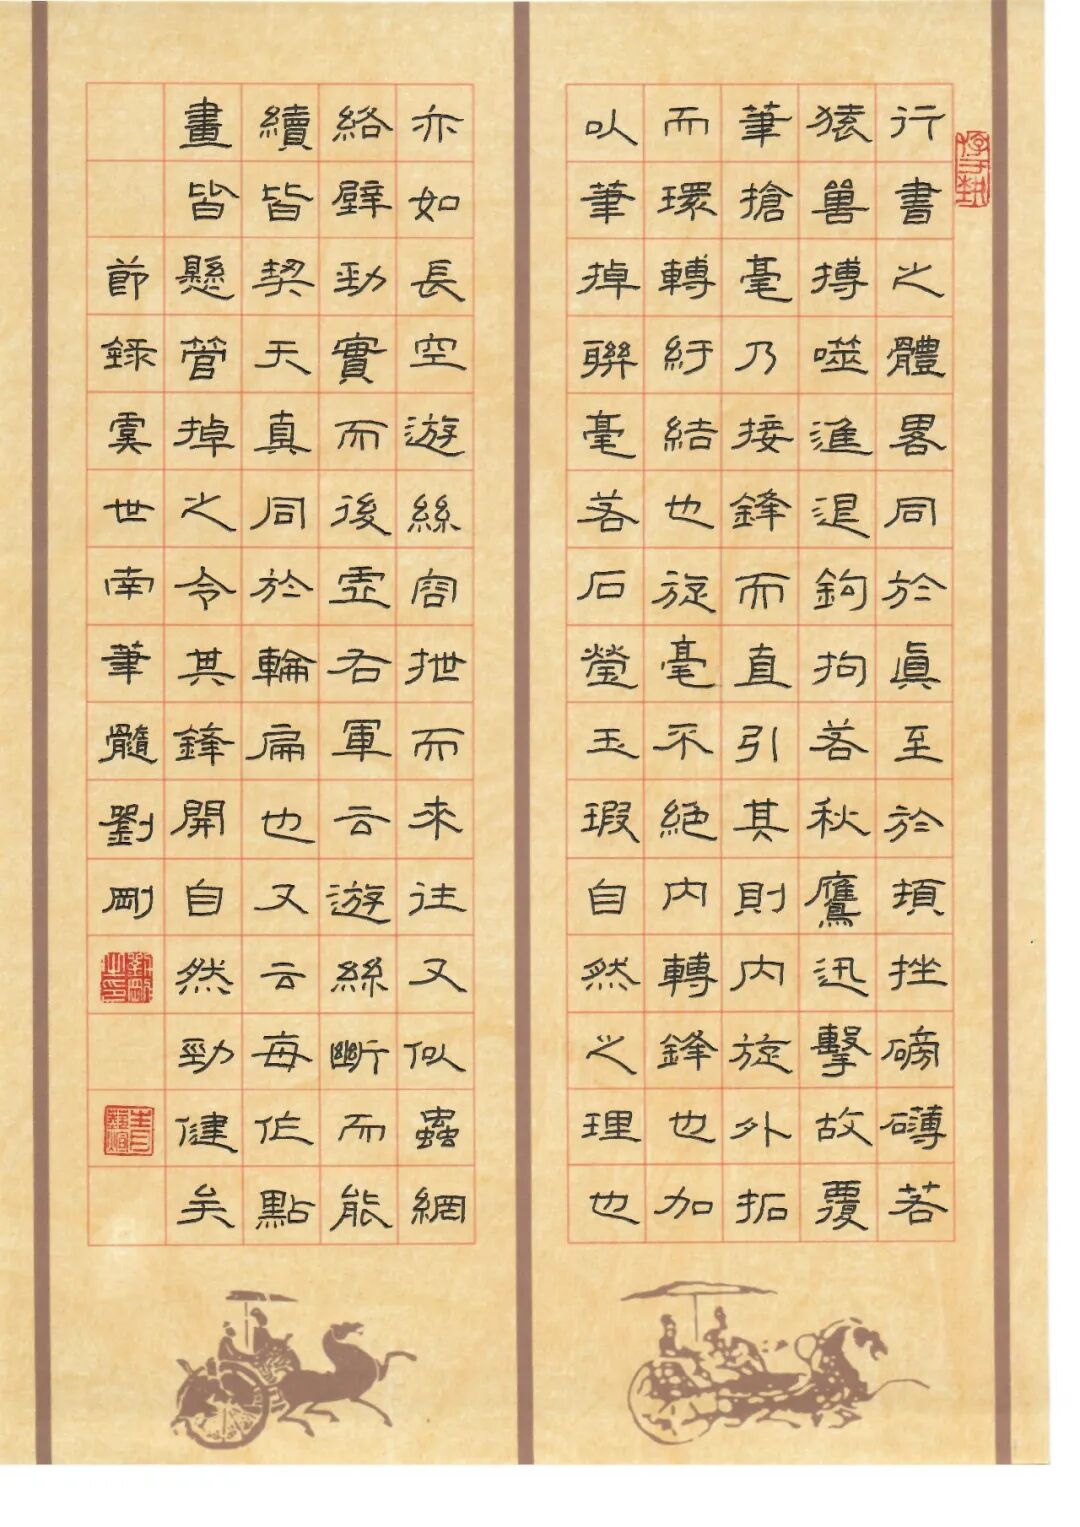 行書之體畧同於眞至於頓挫磅礴若
猿嘼搏噬進退鉤拘若秋鷹迅擊故覆
筆搶毫乃接鋒而直引其則内旋外拓
而環轉紆結也旋毫不絕内轉鋒也加
以筆掉聯毫若石瑩玉瑕自然之理也
亦如長空遊絲容抴而來往又似蟲網
絡壁勁實而後虛右軍云遊絲斷而能
續皆契天真同於輪扁也又云每作點
畫皆懸管掉之令其鋒開自然勁健矣
節錄虞世南筆髓劉剛
劉剛之印